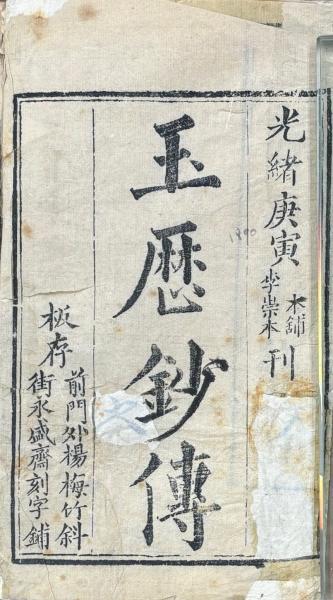 光緒庚寅李崇本本舖刊
1890
玉歷鈔傳
板存前門外楊梅竹斜
街永盛齋刻字鋪